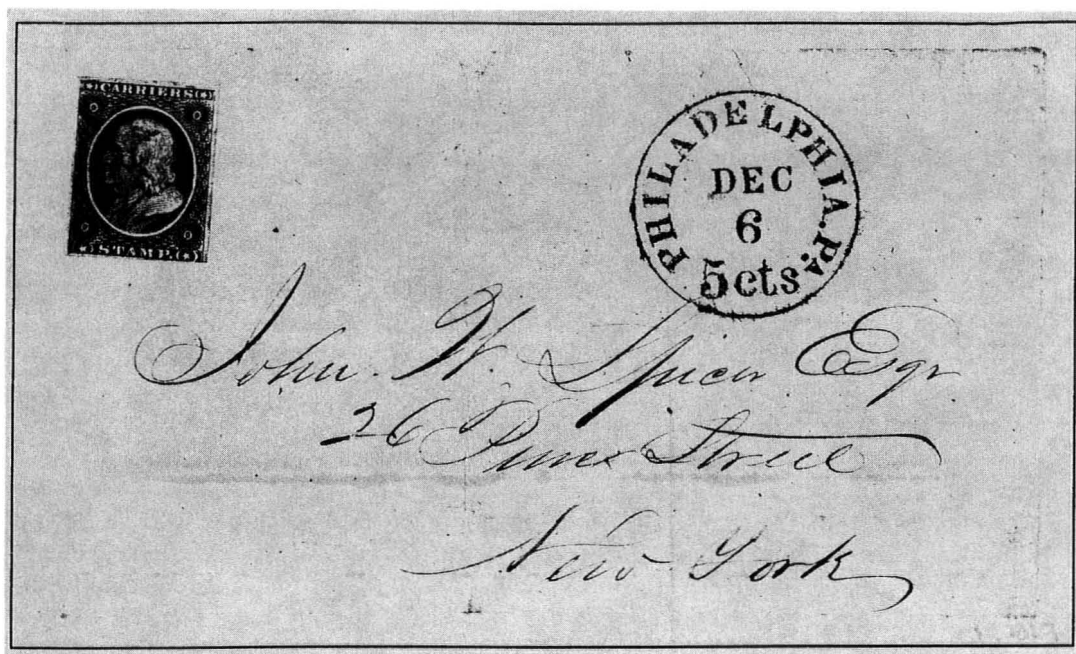 CARRIERS
STAMP.
PHILADELPHIA. Pa.
DEC
6
5cts
John. W. Spicer Esqr
26 Pine Street
New York